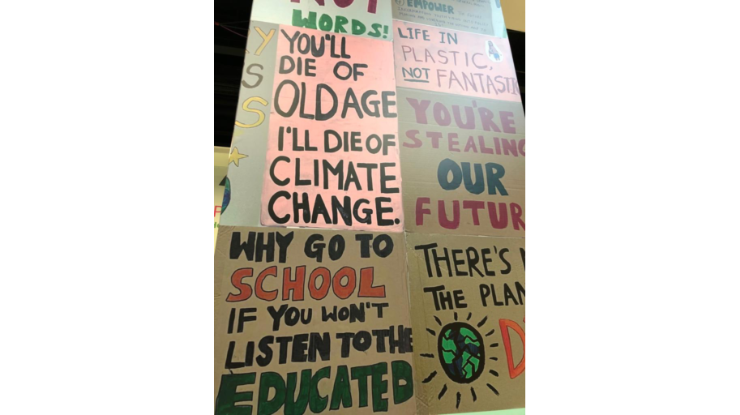 WORDS!
EMPOWER
YOU'LL
DIE OF
OLD AGE
I'LL DIE OF
CLIMATE
CHANGE.
LIFE IN
PLASTIC,
NOT FANTASTI
YOU'RE
STEALING
OUR
FUTUR
WHY GO TO
SCHOOL
IF YOU WON'T
LISTEN TO THE
EDUCATED
THERE'S
THE PLAN